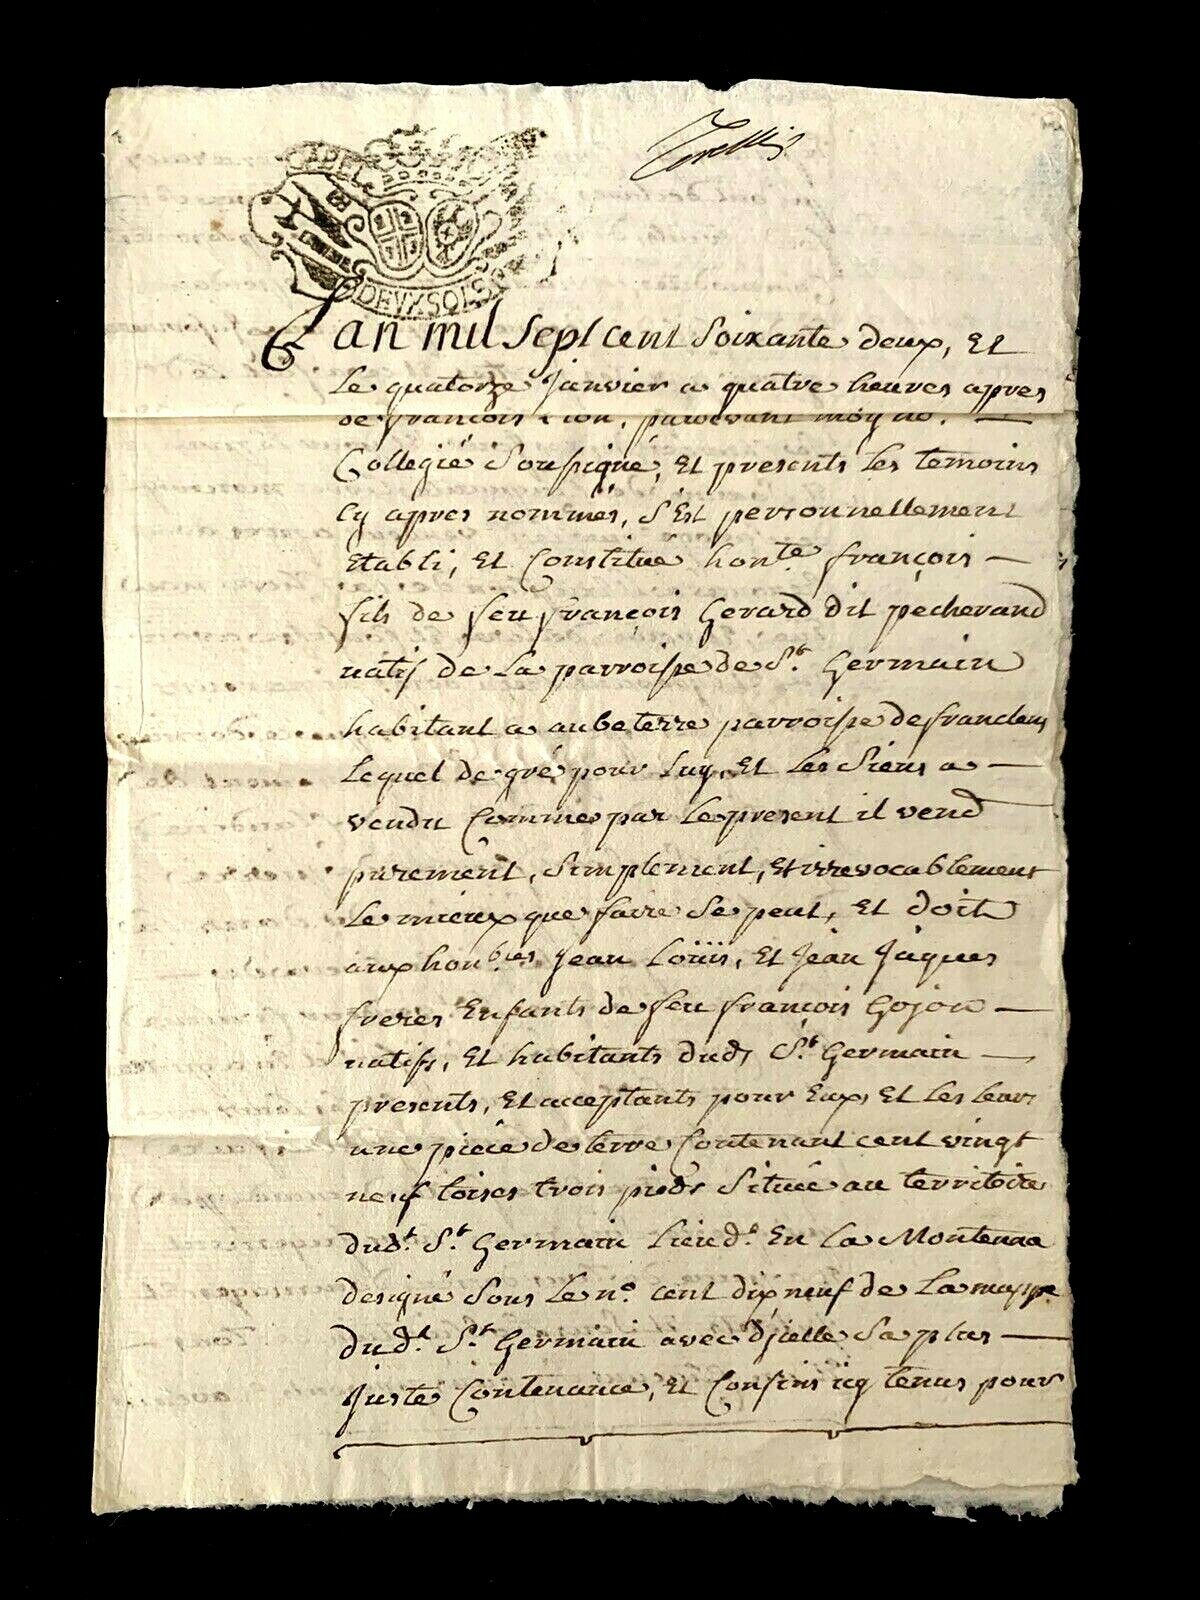 DEUX SOLS
L'an mil sept cent soixante deux, et
le quatorze janvier a quatre heures apres
de françois
Collegié soussigné, et presents les temoins
cy apres nommés, s'est personnellement
etabli, et constitué hon.te françois —
fils de feu françois Gerard dit pecherand
natif de la parroisse de S.t Germain
habitant a aubeterre parroisse de franclens
lequel de gré pour luy, et les siens a —
vendu comme par le present il vend
purement, simplement, et irrevocablement
le mieux que faire se peut, et doit
aux hon.bles Jean Loüis, et Jean Jaques
freres enfants de feu françois Gojon —
natifs, et habitants dud.t S.t Germain —
presents, et acceptants pour eux, et les leurs
une piéce de terre contenant cent vingt
neuf toises trois pieds située au territoire
dud.t S.t Germain lieu d.t en la Montenaa
designé sous le n.o cent dix neuf de la mappe
dud.t S.t Germain avec d'jcelle sa plus —
juste contenance, et confins icy tenus pour